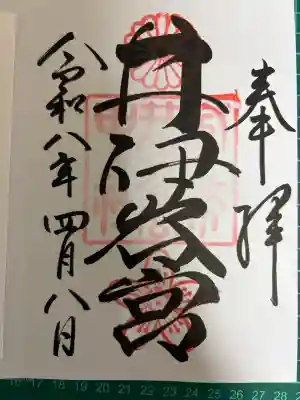 奉拝
井伊谷宮
令和八年四月八日
16 17 18 19 20 21 22 23 24 25 26 27 28